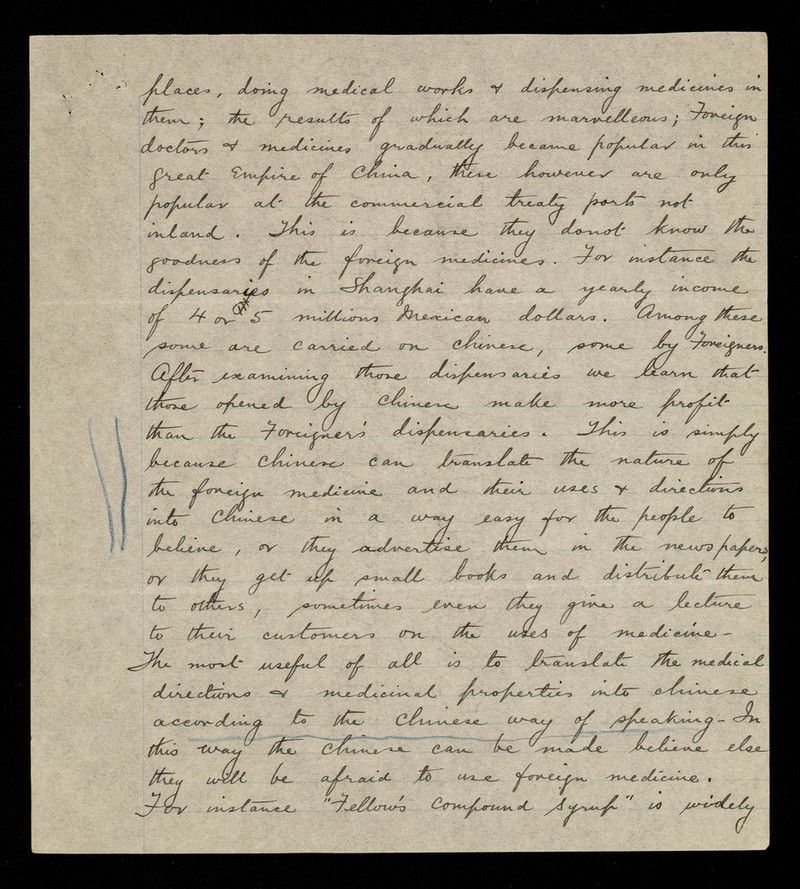 places, doing medical works & dispensing medicines in
them; the results of which are marvelleous; Foreign
doctors & medicines gradually became popular in this
great Empire of China, these however are only
popular at the commercial treaty ports not
inland. This is because they donot know the
goodness of the foreign medicines. For instance the
dispensaries in Shanghai have a yearly income
of 4 or 5 millions Mexican dollars. Among these
some are carried on Chinese, some by Foreigners.
After examining those dispensaries we learn that
those opened by Chinese make more profit
than the Foreigner's dispensaries. This is simply
because Chinese can translate the nature of
the foreign medicine and their uses & directions
into Chinese in a way easy for the people to
believe, or they advertise them in the newspapers,
or they get up small books and distribute them
to others, sometimes even they give a lecture
to their customers on the uses of medicine -
The most useful of all is to translate the medical
directions & medicinal properties into chinese
according to the Chinese way of speaking - In
this way the Chinese can be made believe else
they will be afraid to use foreign medicine.
For instance "Fellow's Compound Syrup" is widely